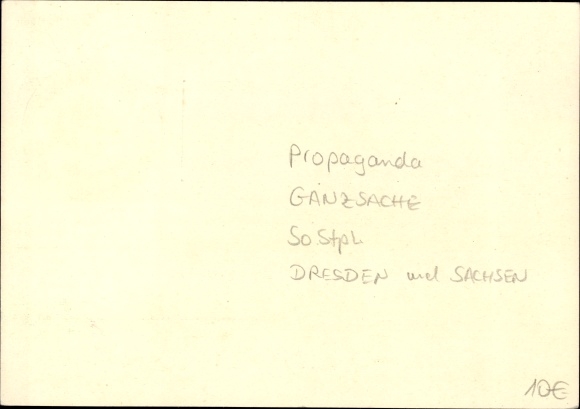 Propaganda
GANZSACHE
So.Stpl.
DRESDEN und SACHSEN
10€